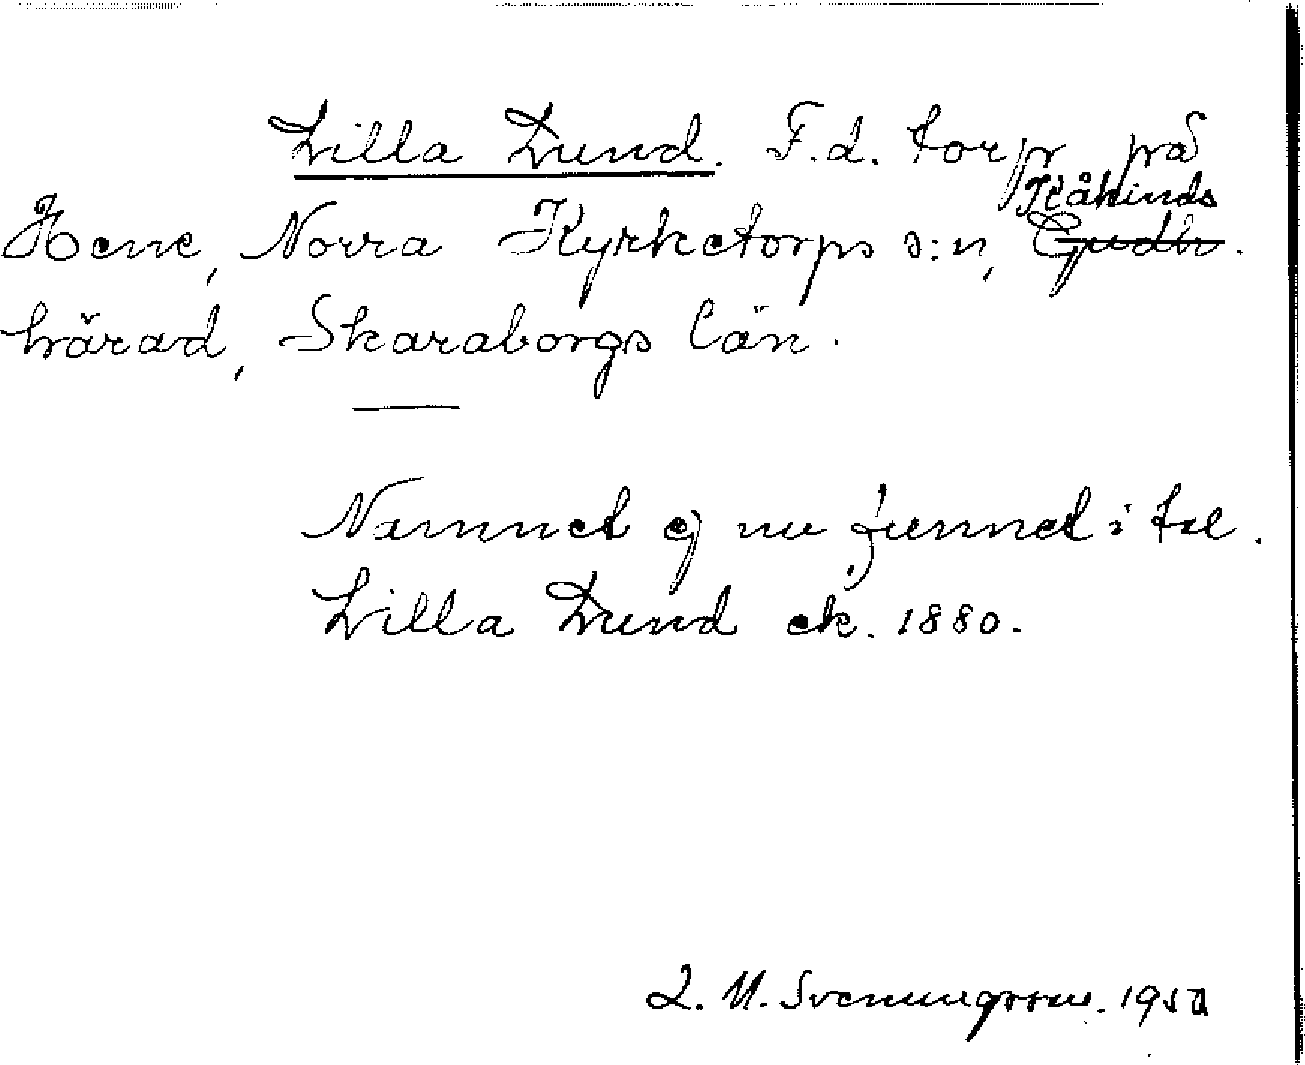 Lilla Lund. F.d. torp på
Hene, Norra Kyrketorps s:n, Kåkinds
härad, Skaraborgs län.
Namnet ej nu funnet i tal.
Lilla Lund ek. 1880.
L. M. Svenungsson. 195